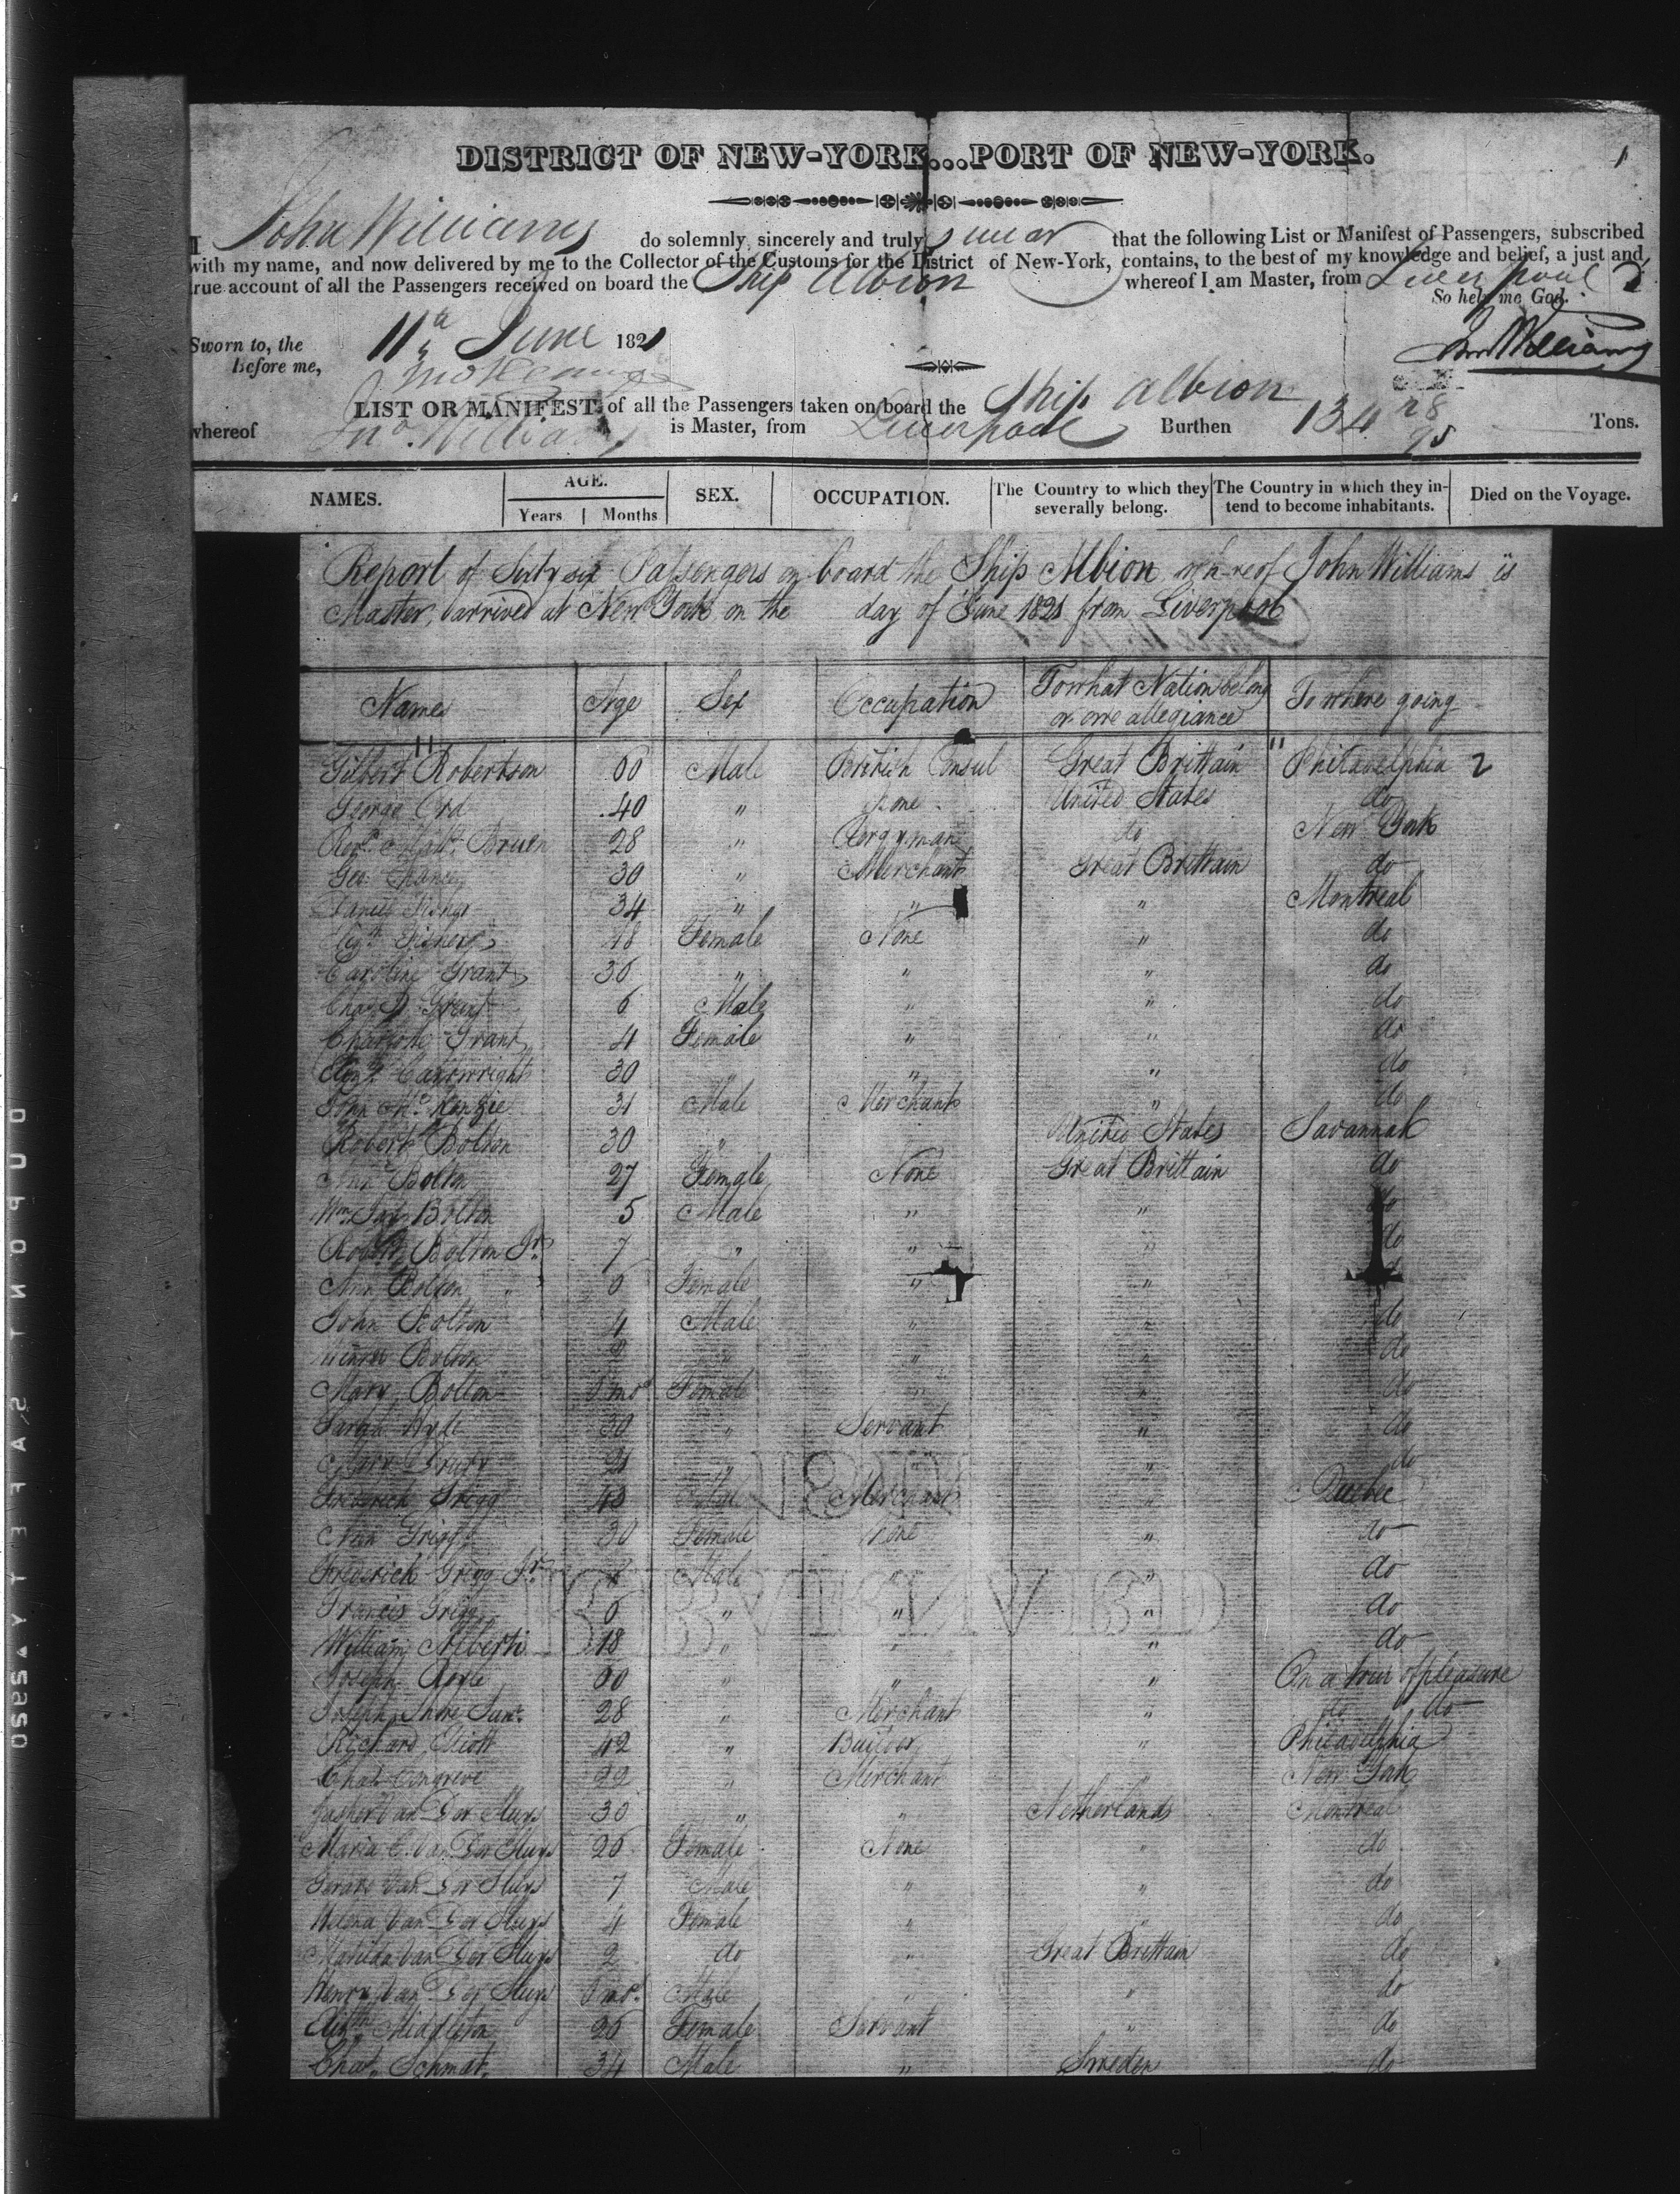 DISTRICT OF NEW-YORK...PORT OF NEW-YORK.
I John Williams do solemnly, sincerely and truly swear that the following List or Manifest of Passengers, subscribed
with my name, and now delivered by me to the Collector of the Customs for the District of New-York, contains, to the best of my knowledge and belief, a just and
true account of all the Passengers received on board the Ship Albion whereof I am Master, from Liverpool
So help me God.
Sworn to, the 11th June 1821
Before me,
Jno Williams
LIST OR MANIFEST of all the Passengers taken on board the Ship Albion
whereof Jno. Williams is Master, from Liverpool Burthen 434 28/95 Tons.
NAMES. AGE. Years Months SEX. OCCUPATION. The Country to which they severally belong. The Country in which they intend to become inhabitants. Died on the Voyage.
Report of Sixty six Passengers on board the Ship Albion whereof John Williams is
Master, arrived at New York on the day of June 1821 from Liverpool
Names Age Sex Occupation To what Nation belong or owe allegiance To where going
Gilbert Robertson Male British Consul Great Brittain Philadelphia 2
George Ord 40 " None United States do
Revd. Matt. Bruen 28 " Clergyman do New York
Geo. 30 " Merchant Great Brittain do
34 " " " Montreal
Female None " do
Caroline Grant " " " do
Chas. Grant 6 Male " " do
Charlotte Grant 4 Female " " do
Elizth. Cartwright 30 " " do
John McKenzie 31 Male Merchant " do
Robert Bolton 30 " United States Savannah
Ann Bolton 27 Female None Great Brittain do
Wm. Bolton 5 Male " " do
Robert Bolton Jr. 7 " " " do
Ann Bolton 6 Female " "
John Bolton 4 Male " " do
Bolton " " " do
Mary Bolton mos Female " " do
Sarah 30 " Servant " do
Mary Drury 21 " " do
Frederick Grigg 43 Male Merchant " Quebec
Ann Grigg 30 Female None " do
Frederick Grigg Jr. Male " " do
Francis Grigg 6 " " " do
William Alberti 18 " " " do
Joseph " " " On a tour of pleasure
Joseph Shore Junr. 28 " Merchant " do do
Richard Eliott 42 " Builder " Philadelphia
Chas. Congreve 22 " Merchant " New York
Van Der Sluys 30 " " Netherlands Montreal
Maria C. Van Der Sluys 26 Female None " do
Gerard Van Der Sluys 7 Male " " do
Van Der Sluys 4 Female " " do
Matilda Van Der Sluys 2 do " Great Brittain do
Henry Van Der Sluys mos. Male " " do
Elizth. Middleton 26 Female Servant " do
Chas. Schmat 34 Male " Sweden do